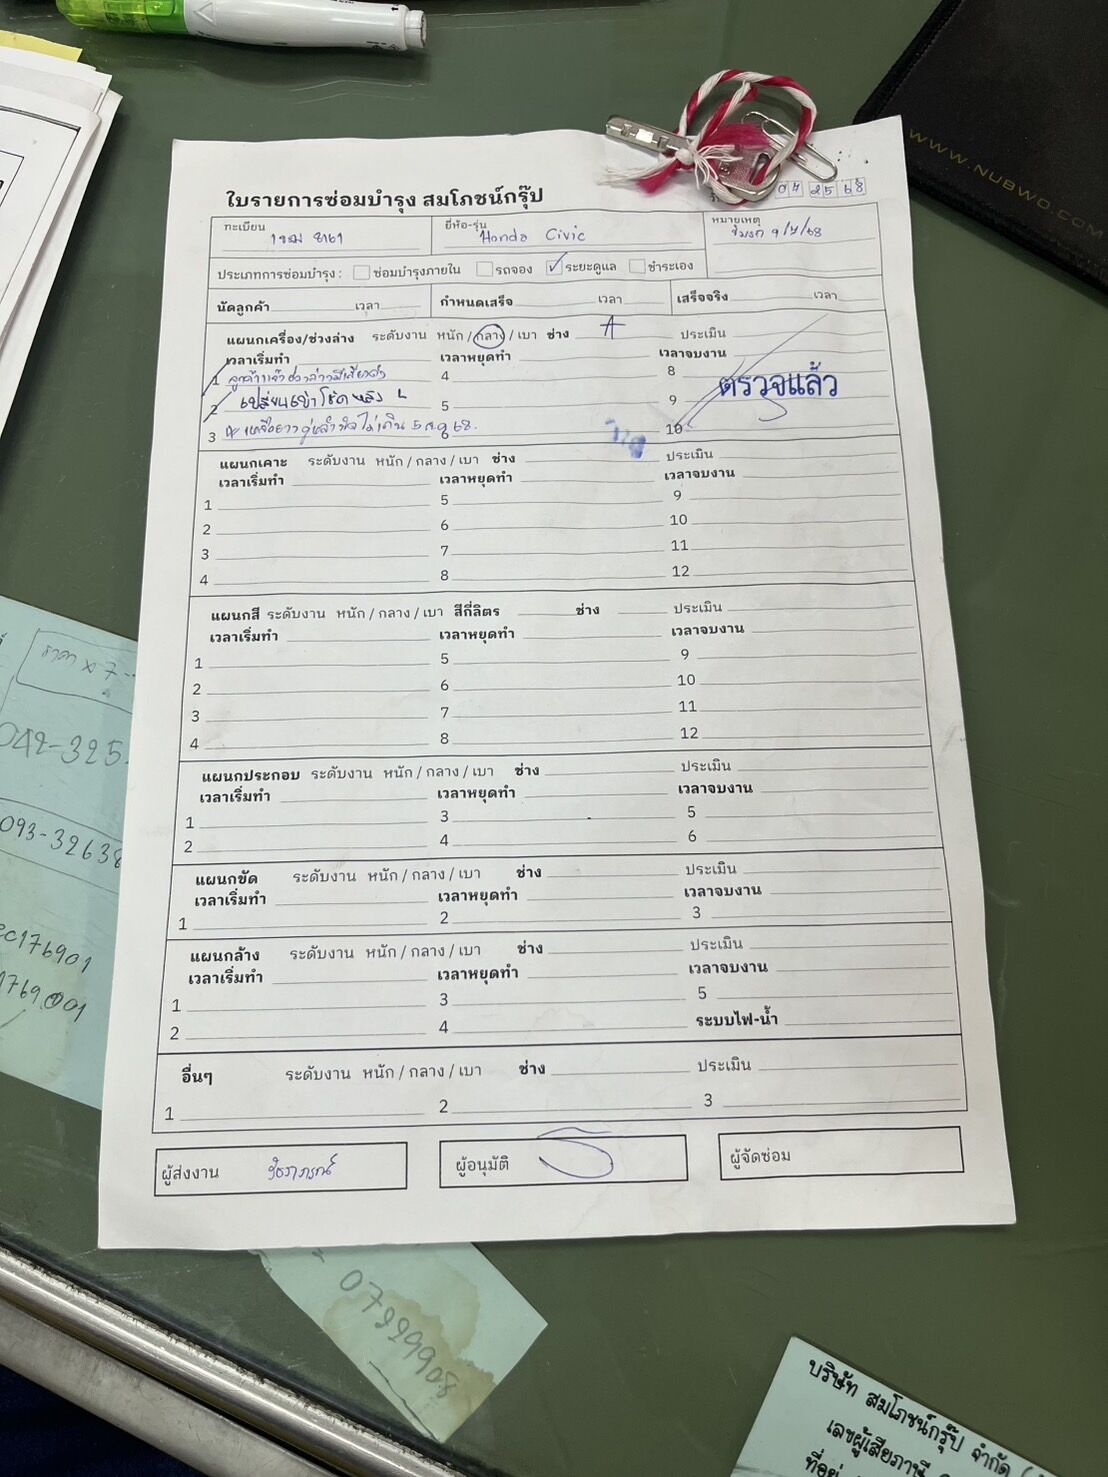 WWW.NUBWO.COM
ใบรายการซ่อมบำรุง สมโภชน์กรุ๊ป
04 2568
ทะเบียน 1ขฒ 8161 ยี่ห้อ-รุ่น Honda Civic หมายเหตุ
9/4/68
ประเภทการซ่อมบำรุง : ซ่อมบำรุงภายใน รถจอง ✓ ระยะดูแล ชำระเอง
นัดลูกค้า เวลา กำหนดเสร็จ เวลา เสร็จจริง เวลา
แผนกเครื่อง/ช่วงล่าง ระดับงาน หนัก / กลาง / เบา ช่าง A ประเมิน
เวลาเริ่มทำ เวลาหยุดทำ เวลาจบงาน
1 ลูกค้าแจ้งช่วงล่างมีเสียงดัง 4 8
2 เปลี่ยนเบ้าโช๊คหลัง L 5 9 ตรวจแล้ว
3 68. 6 10
แผนกเคาะ ระดับงาน หนัก / กลาง / เบา ช่าง ประเมิน
เวลาเริ่มทำ เวลาหยุดทำ เวลาจบงาน
1 5 9
2 6 10
3 7 11
4 8 12
แผนกสี ระดับงาน หนัก / กลาง / เบา สีกี่ลิตร ช่าง ประเมิน
เวลาเริ่มทำ เวลาหยุดทำ เวลาจบงาน
1 5 9
2 6 10
3 7 11
4 8 12
แผนกประกอบ ระดับงาน หนัก / กลาง / เบา ช่าง ประเมิน
เวลาเริ่มทำ เวลาหยุดทำ เวลาจบงาน
1 3 5
2 4 6
แผนกขัด ระดับงาน หนัก / กลาง / เบา ช่าง ประเมิน
เวลาเริ่มทำ เวลาหยุดทำ เวลาจบงาน
1 2 3
แผนกล้าง ระดับงาน หนัก / กลาง / เบา ช่าง ประเมิน
เวลาเริ่มทำ เวลาหยุดทำ เวลาจบงาน
1 3 5
2 4 ระบบไฟ-น้ำ
อื่นๆ ระดับงาน หนัก / กลาง / เบา ช่าง ประเมิน
1 2 3
ผู้ส่งงาน ผู้อนุมัติ ผู้จัดซ่อม
042-325
093-32638
c176901
1769001
บริษัท สมโภชน์กรุ๊ป จำกัด
เลขผู้เสียภาษี
ที่อยู่